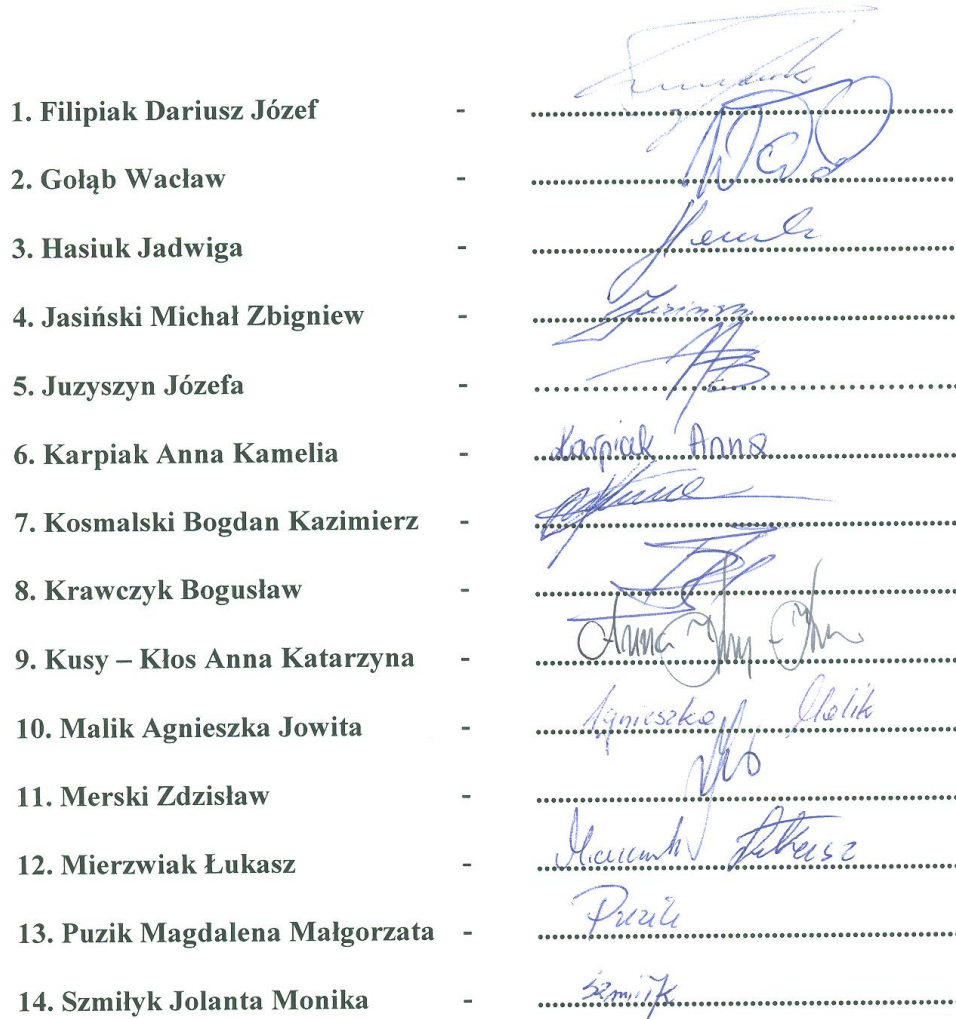 1. Filipiak Dariusz Józef -
2. Gołąb Wacław -
3. Hasiuk Jadwiga -
4. Jasiński Michał Zbigniew -
5. Juzyszyn Józefa -
6. Karpiak Anna Kamelia - Karpiak Anna
7. Kosmalski Bogdan Kazimierz -
8. Krawczyk Bogusław -
9. Kusy – Kłos Anna Katarzyna - Anna
10. Malik Agnieszka Jowita - Agnieszka Malik
11. Merski Zdzisław -
12. Mierzwiak Łukasz - Łukasz
13. Puzik Magdalena Małgorzata - Puzik
14. Szmiłyk Jolanta Monika -